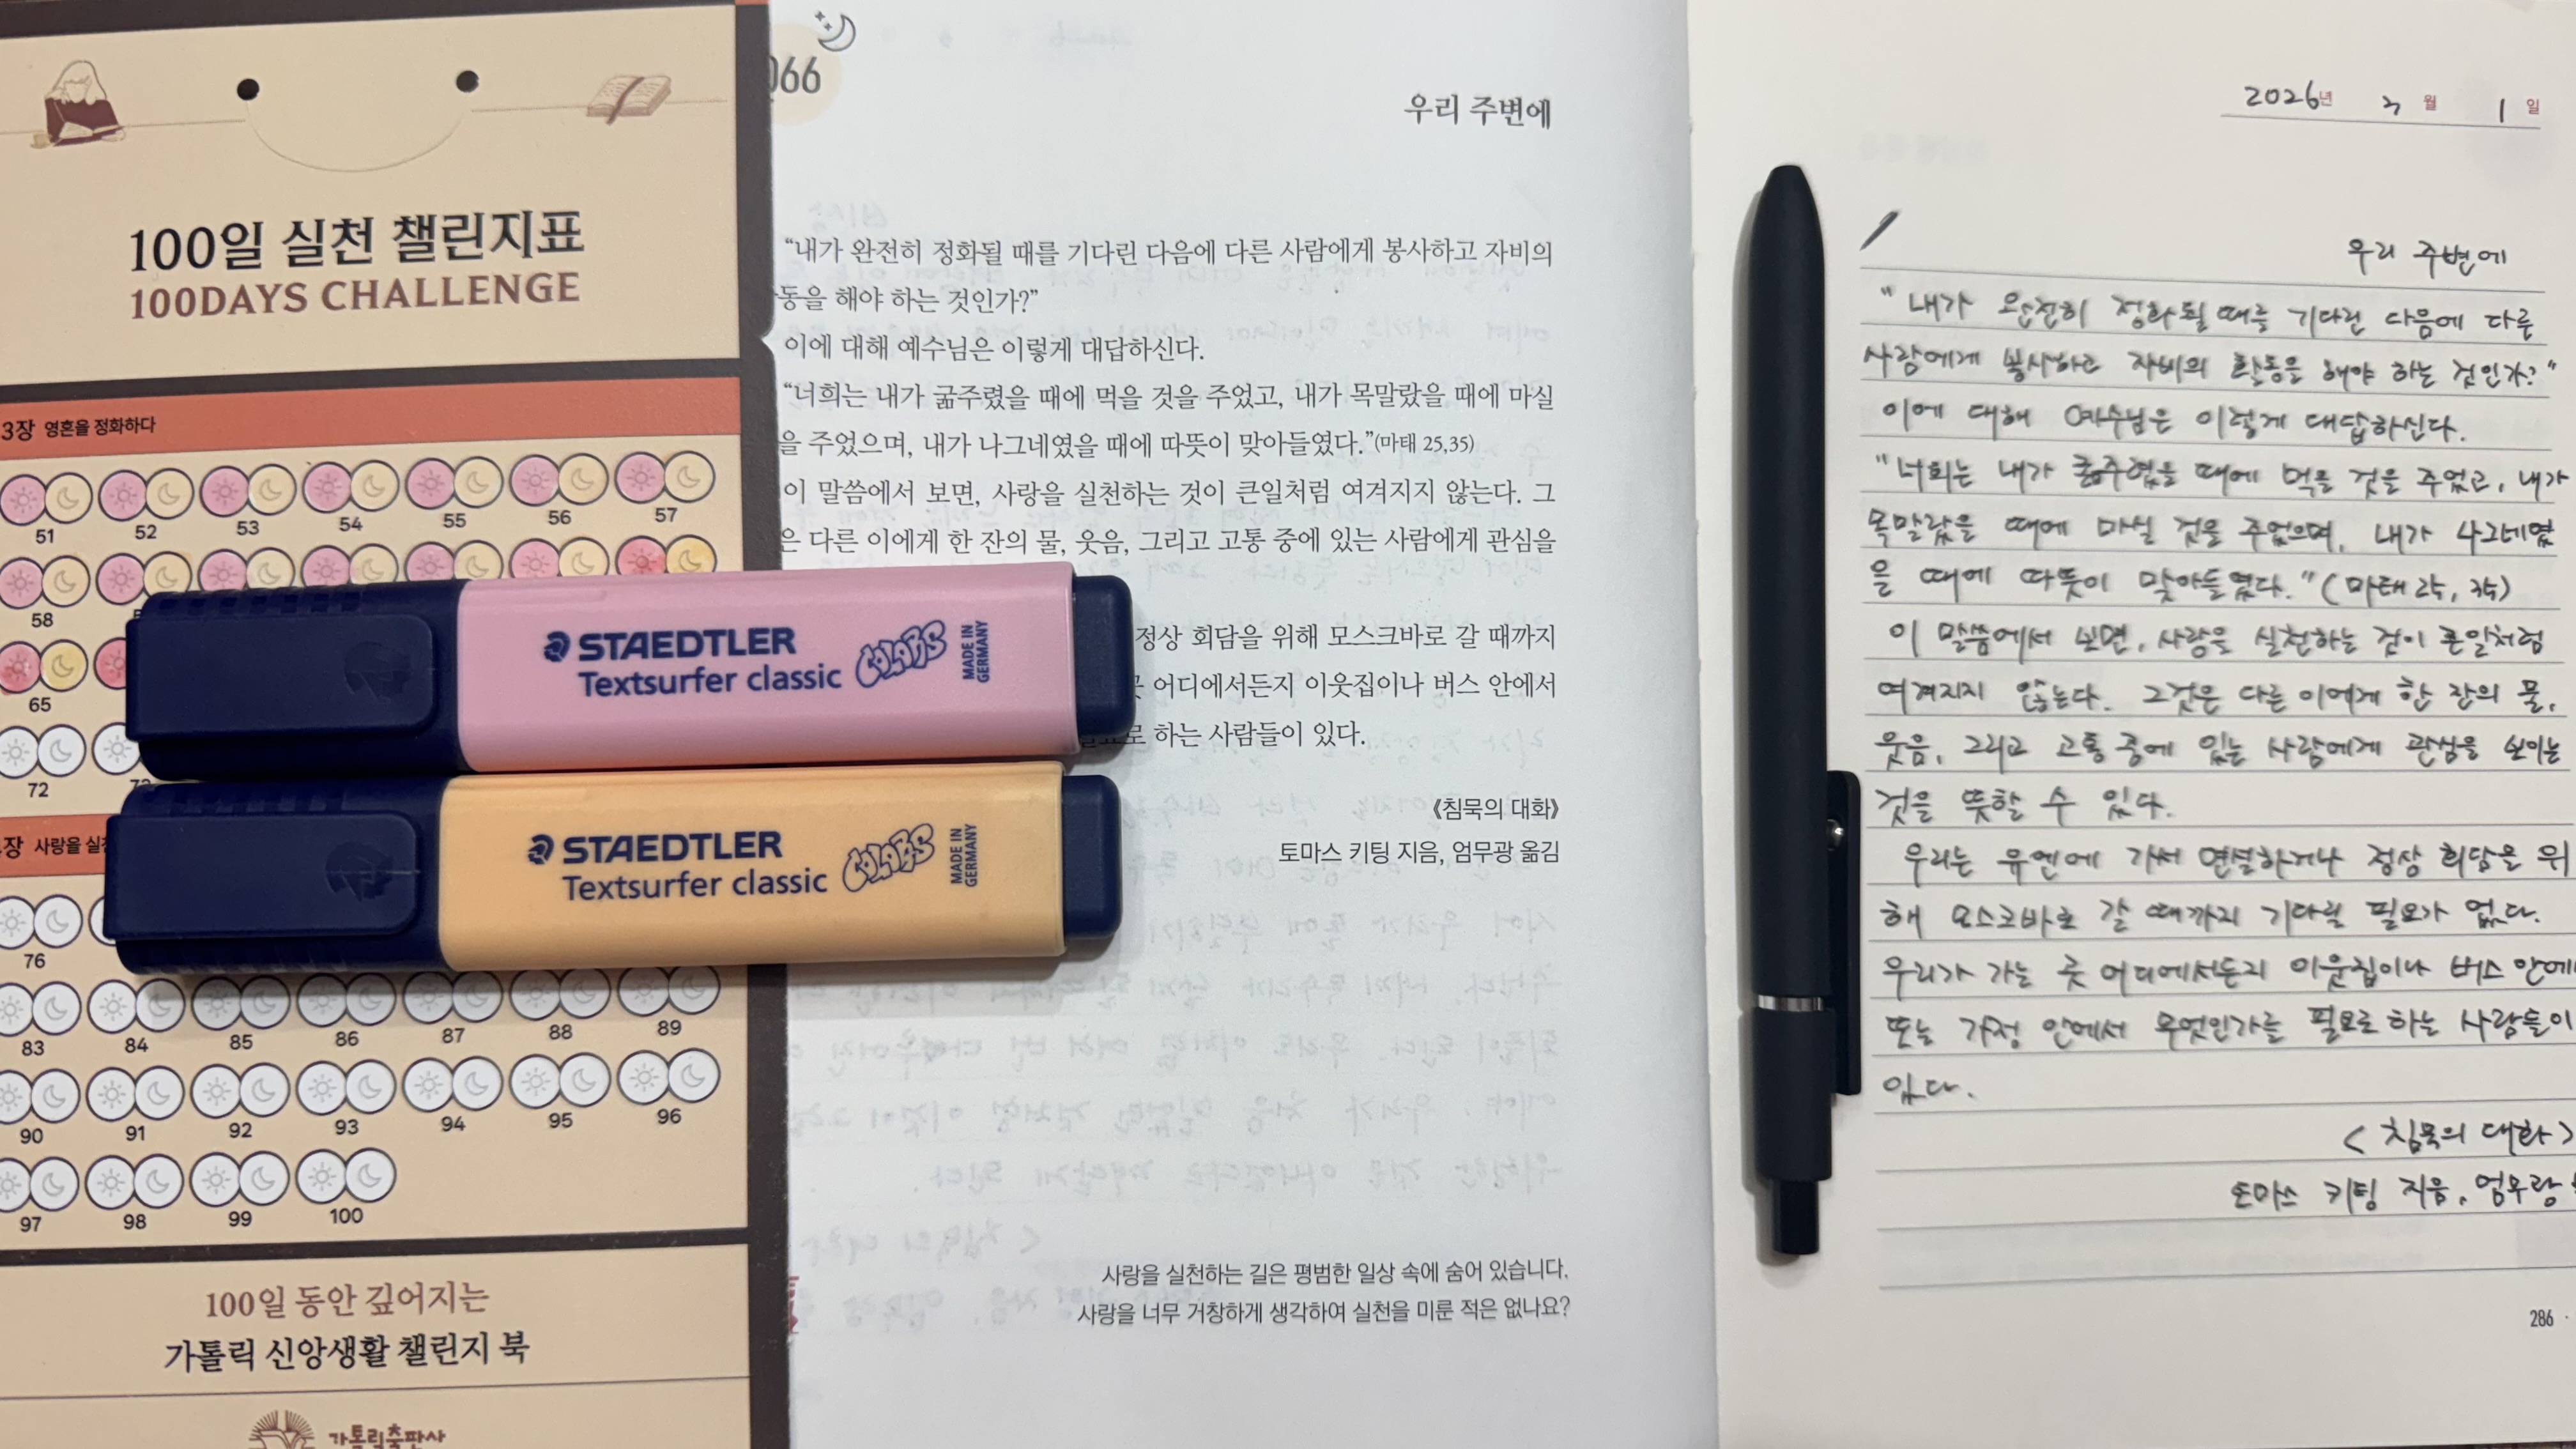 100일 실천 챌린지표
100DAYS CHALLENGE
3장 영혼을 정화하다
51 52 53 54 55 56 57
58
65
72
장 사랑을
76
83 84 85 86 87 88 89
90 91 92 93 94 95 96
97 98 99 100
100일 동안 깊어지는
가톨릭 신앙생활 챌린지 북
가톨릭출판사
STAEDTLER
Textsurfer classic
COLORS
MADE IN
GERMANY
STAEDTLER
Textsurfer classic
COLORS
MADE IN
GERMANY
066
우리 주변에
“내가 완전히 정화될 때를 기다린 다음에 다른 사람에게 봉사하고 자비의
동을 해야 하는 것인가?”
이에 대해 예수님은 이렇게 대답하신다.
“너희는 내가 굶주렸을 때에 먹을 것을 주었고, 내가 목말랐을 때에 마실
을 주었으며, 내가 나그네였을 때에 따뜻이 맞아들였다.”(마태 25,35)
이 말씀에서 보면, 사랑을 실천하는 것이 큰일처럼 여겨지지 않는다. 그
은 다른 이에게 한 잔의 물, 웃음, 그리고 고통 중에 있는 사람에게 관심을
정상 회담을 위해 모스크바로 갈 때까지
곳 어디에서든지 이웃집이나 버스 안에서
하는 사람들이 있다.
《침묵의 대화》
토마스 키팅 지음, 엄무광 옮김
사랑을 실천하는 길은 평범한 일상 속에 숨어 있습니다.
사랑을 너무 거창하게 생각하여 실천을 미룬 적은 없나요?
2026년 3월 1일
우리 주변에
"내가 완전히 정화될 때를 기다린 다음에 다른
사람에게 봉사하고 자비의 활동을 해야 하는 것인가?"
이에 대해 예수님은 이렇게 대답하신다.
"너희는 내가 굶주렸을 때에 먹을 것을 주었고, 내가
목말랐을 때에 마실 것을 주었으며, 내가 나그네였
을 때에 따뜻이 맞아들였다."(마태 25, 35)
이 말씀에서 보면, 사랑을 실천하는 것이 큰일처럼
여겨지지 않는다. 그것은 다른 이에게 한 잔의 물,
웃음, 그리고 고통 중에 있는 사람에게 관심을 보이는
것을 뜻할 수 있다.
우리는 유엔에 가서 연설하거나 정상 회담을 위
해 모스크바로 갈 때까지 기다릴 필요가 없다.
우리가 가는 곳 어디에서든지 이웃집이나 버스 안에
또는 가정 안에서 무엇인가를 필요로 하는 사람들이
있다.
<침묵의 대화>
토마스 키팅 지음, 엄무광
286